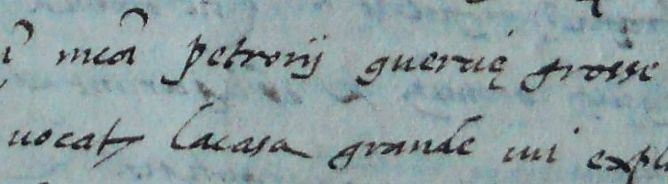 petronij guercię grosse
uocat lacasa grande cui expl